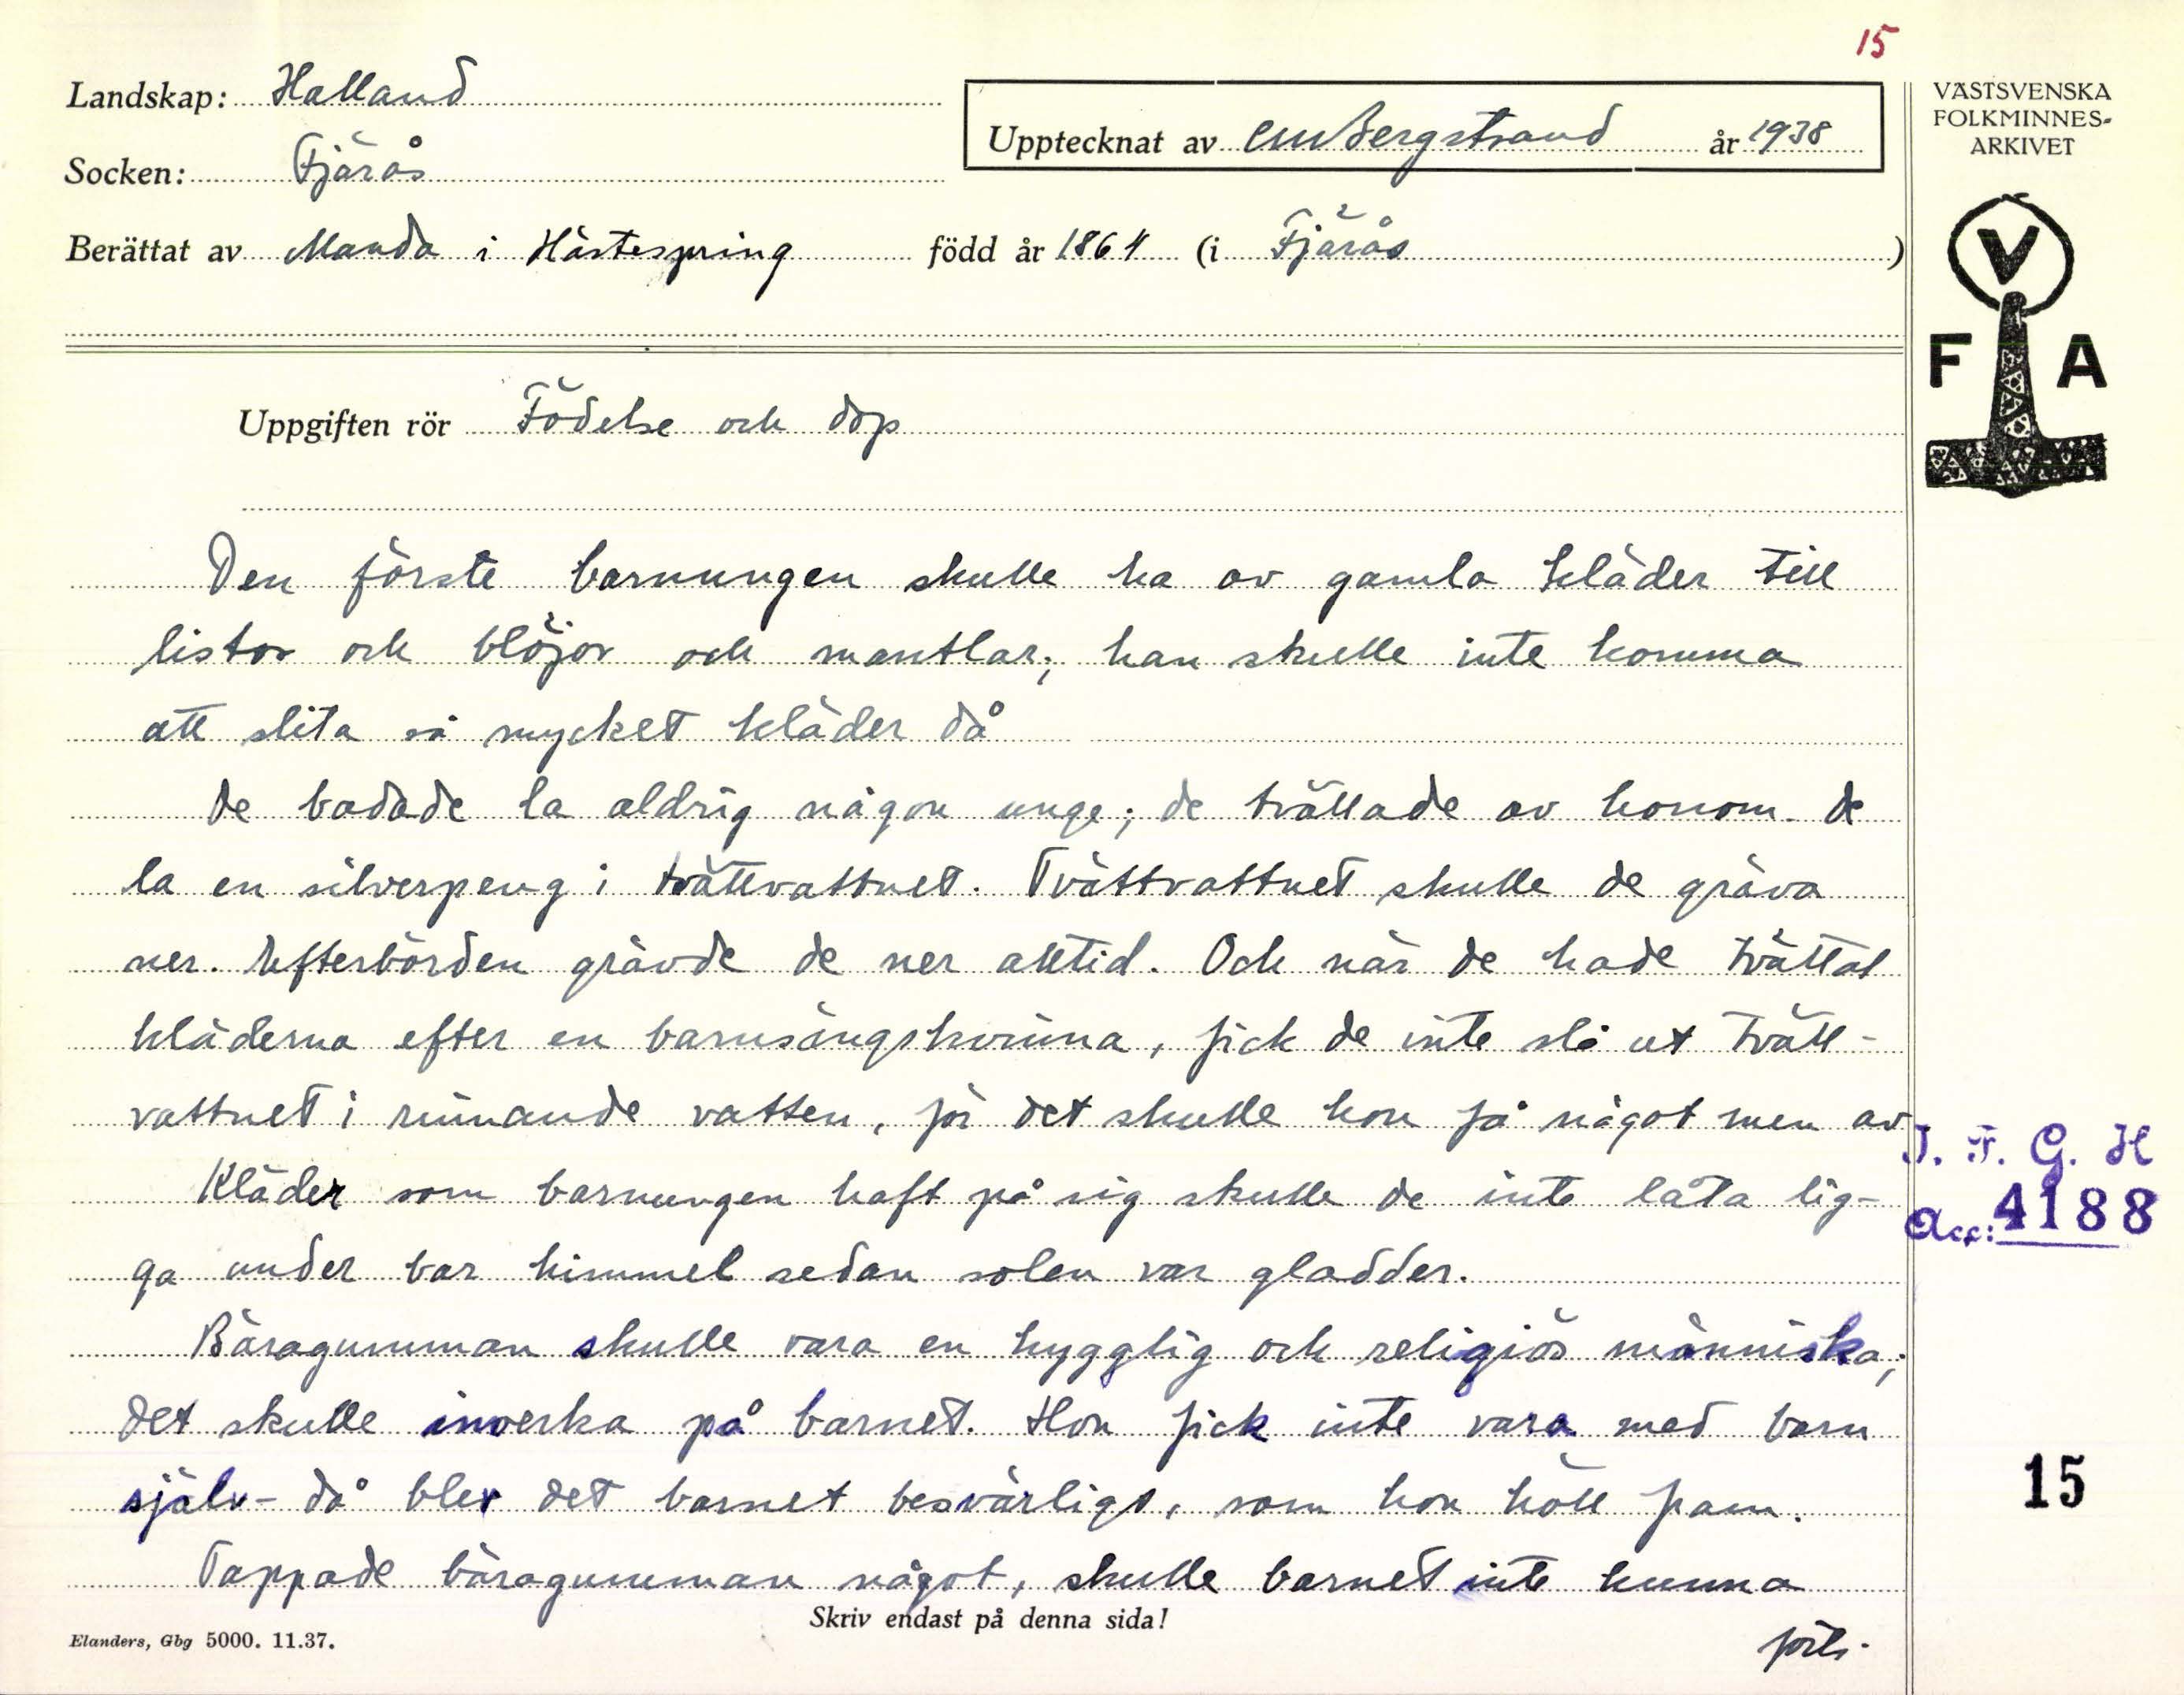 15
Landskap: Halland
Upptecknat av CMBergstrand år 1938
Socken: Fjärås
Berättat av Manda i Hästespring född år 1864 (i Fjärås)
VÄSTSVENSKA
FOLKMINNES-
ARKIVET
V
F A
Uppgiften rör Födelse och dop
Den förste barnungen skulle ha av gamla kläder till
listor och blöjor och mantlar; han skulle inte komma
att slita så mycket kläder då
De badade la aldrig någon unge; de tvättade av honom. De
la en silverpeng i tvättvattnet. Tvättvattnet skulle de gräva
ner. Efterbörden grävde de ner alltid. Och när de hade tvättat
kläderna efter en barnsängskvinna, fick de inte slå ut tvätt-
vattnet i rinnande vatten, för det skulle hon få något men av
Kläder som barnungen haft på sig skulle de inte låta lig-
ga under bar himmel sedan solen var gladder.
Bäragumman skulle vara en hygglig och religiös människa;
det skulle inverka på barnet. Hon fick inte vara med barn
själv- då blev det barnet besvärligt, som hon höll fram.
Tappade bäragumman något, skulle barnet inte kunna
I. F. G. H
Acc: 4188
15
Skriv endast på denna sida!
Elanders, Gbg 5000. 11.37.